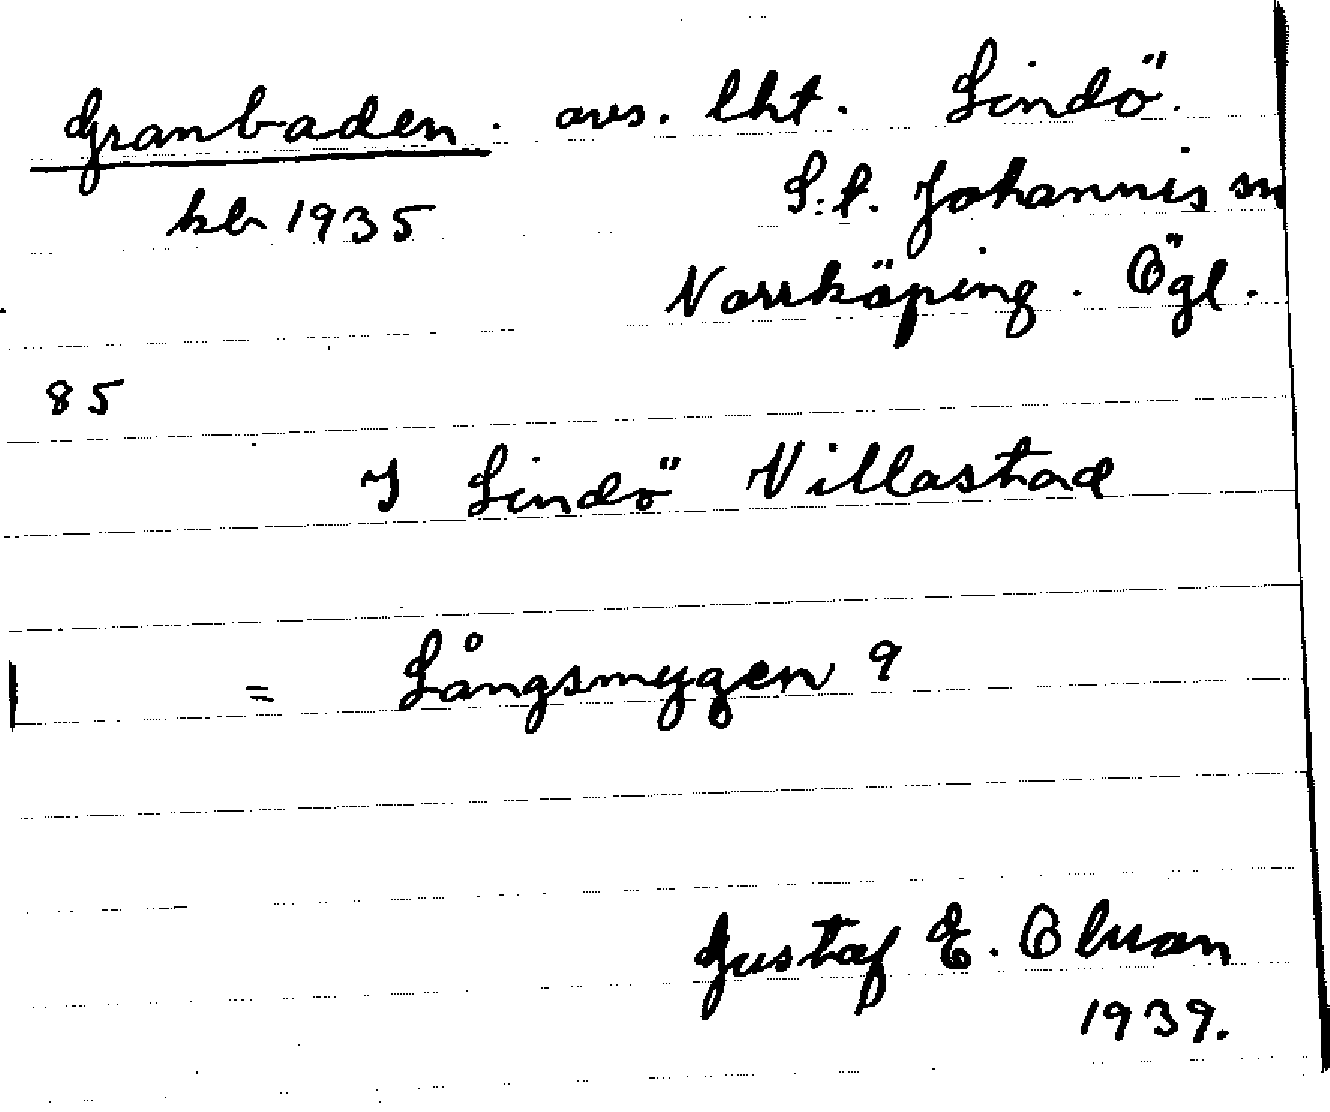 Granbaden. avs. lht. Lindö.
S:t. Johannis sn
kb 1935
Norrköping. Ögl.
85
I Lindö Villastad
= Långsmygen 9
Gustaf E. Olsson
1939.